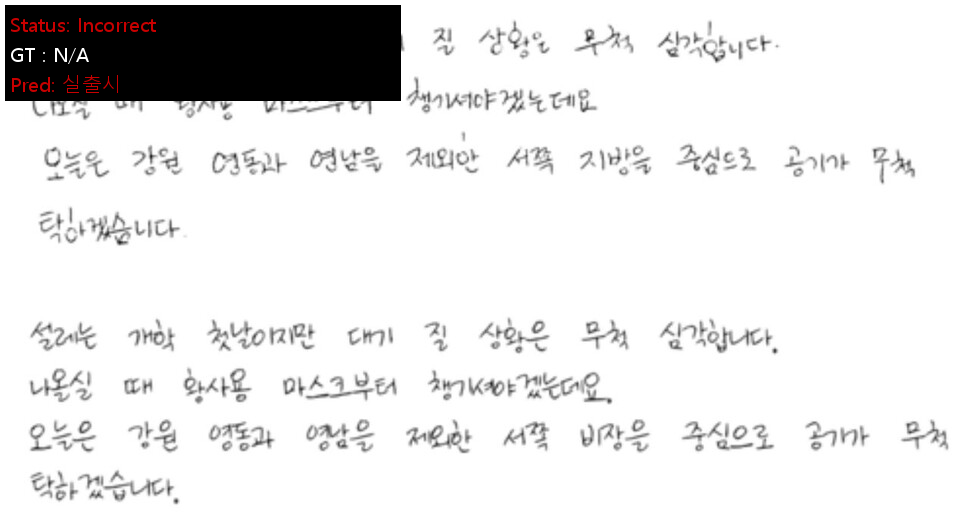 Status: Incorrect
GT : N/A
Pred: 실출시
질 상황은 무척 심각합니다.
나오실 때 황사용 마스크부터 챙기셔야겠는데요
오늘은 강원 영동과 영남을 제외한 서쪽 지방을 중심으로 공기가 무척
탁하겠습니다.
설레는 개학 첫날이지만 대기 질 상황은 무척 심각합니다.
나올실 때 황사용 마스크부터 챙기셔야겠는데요.
오늘은 강원 영동과 영남을 제외한 서쪽 비장을 중심으로 공기가 무척
탁하겠습니다.